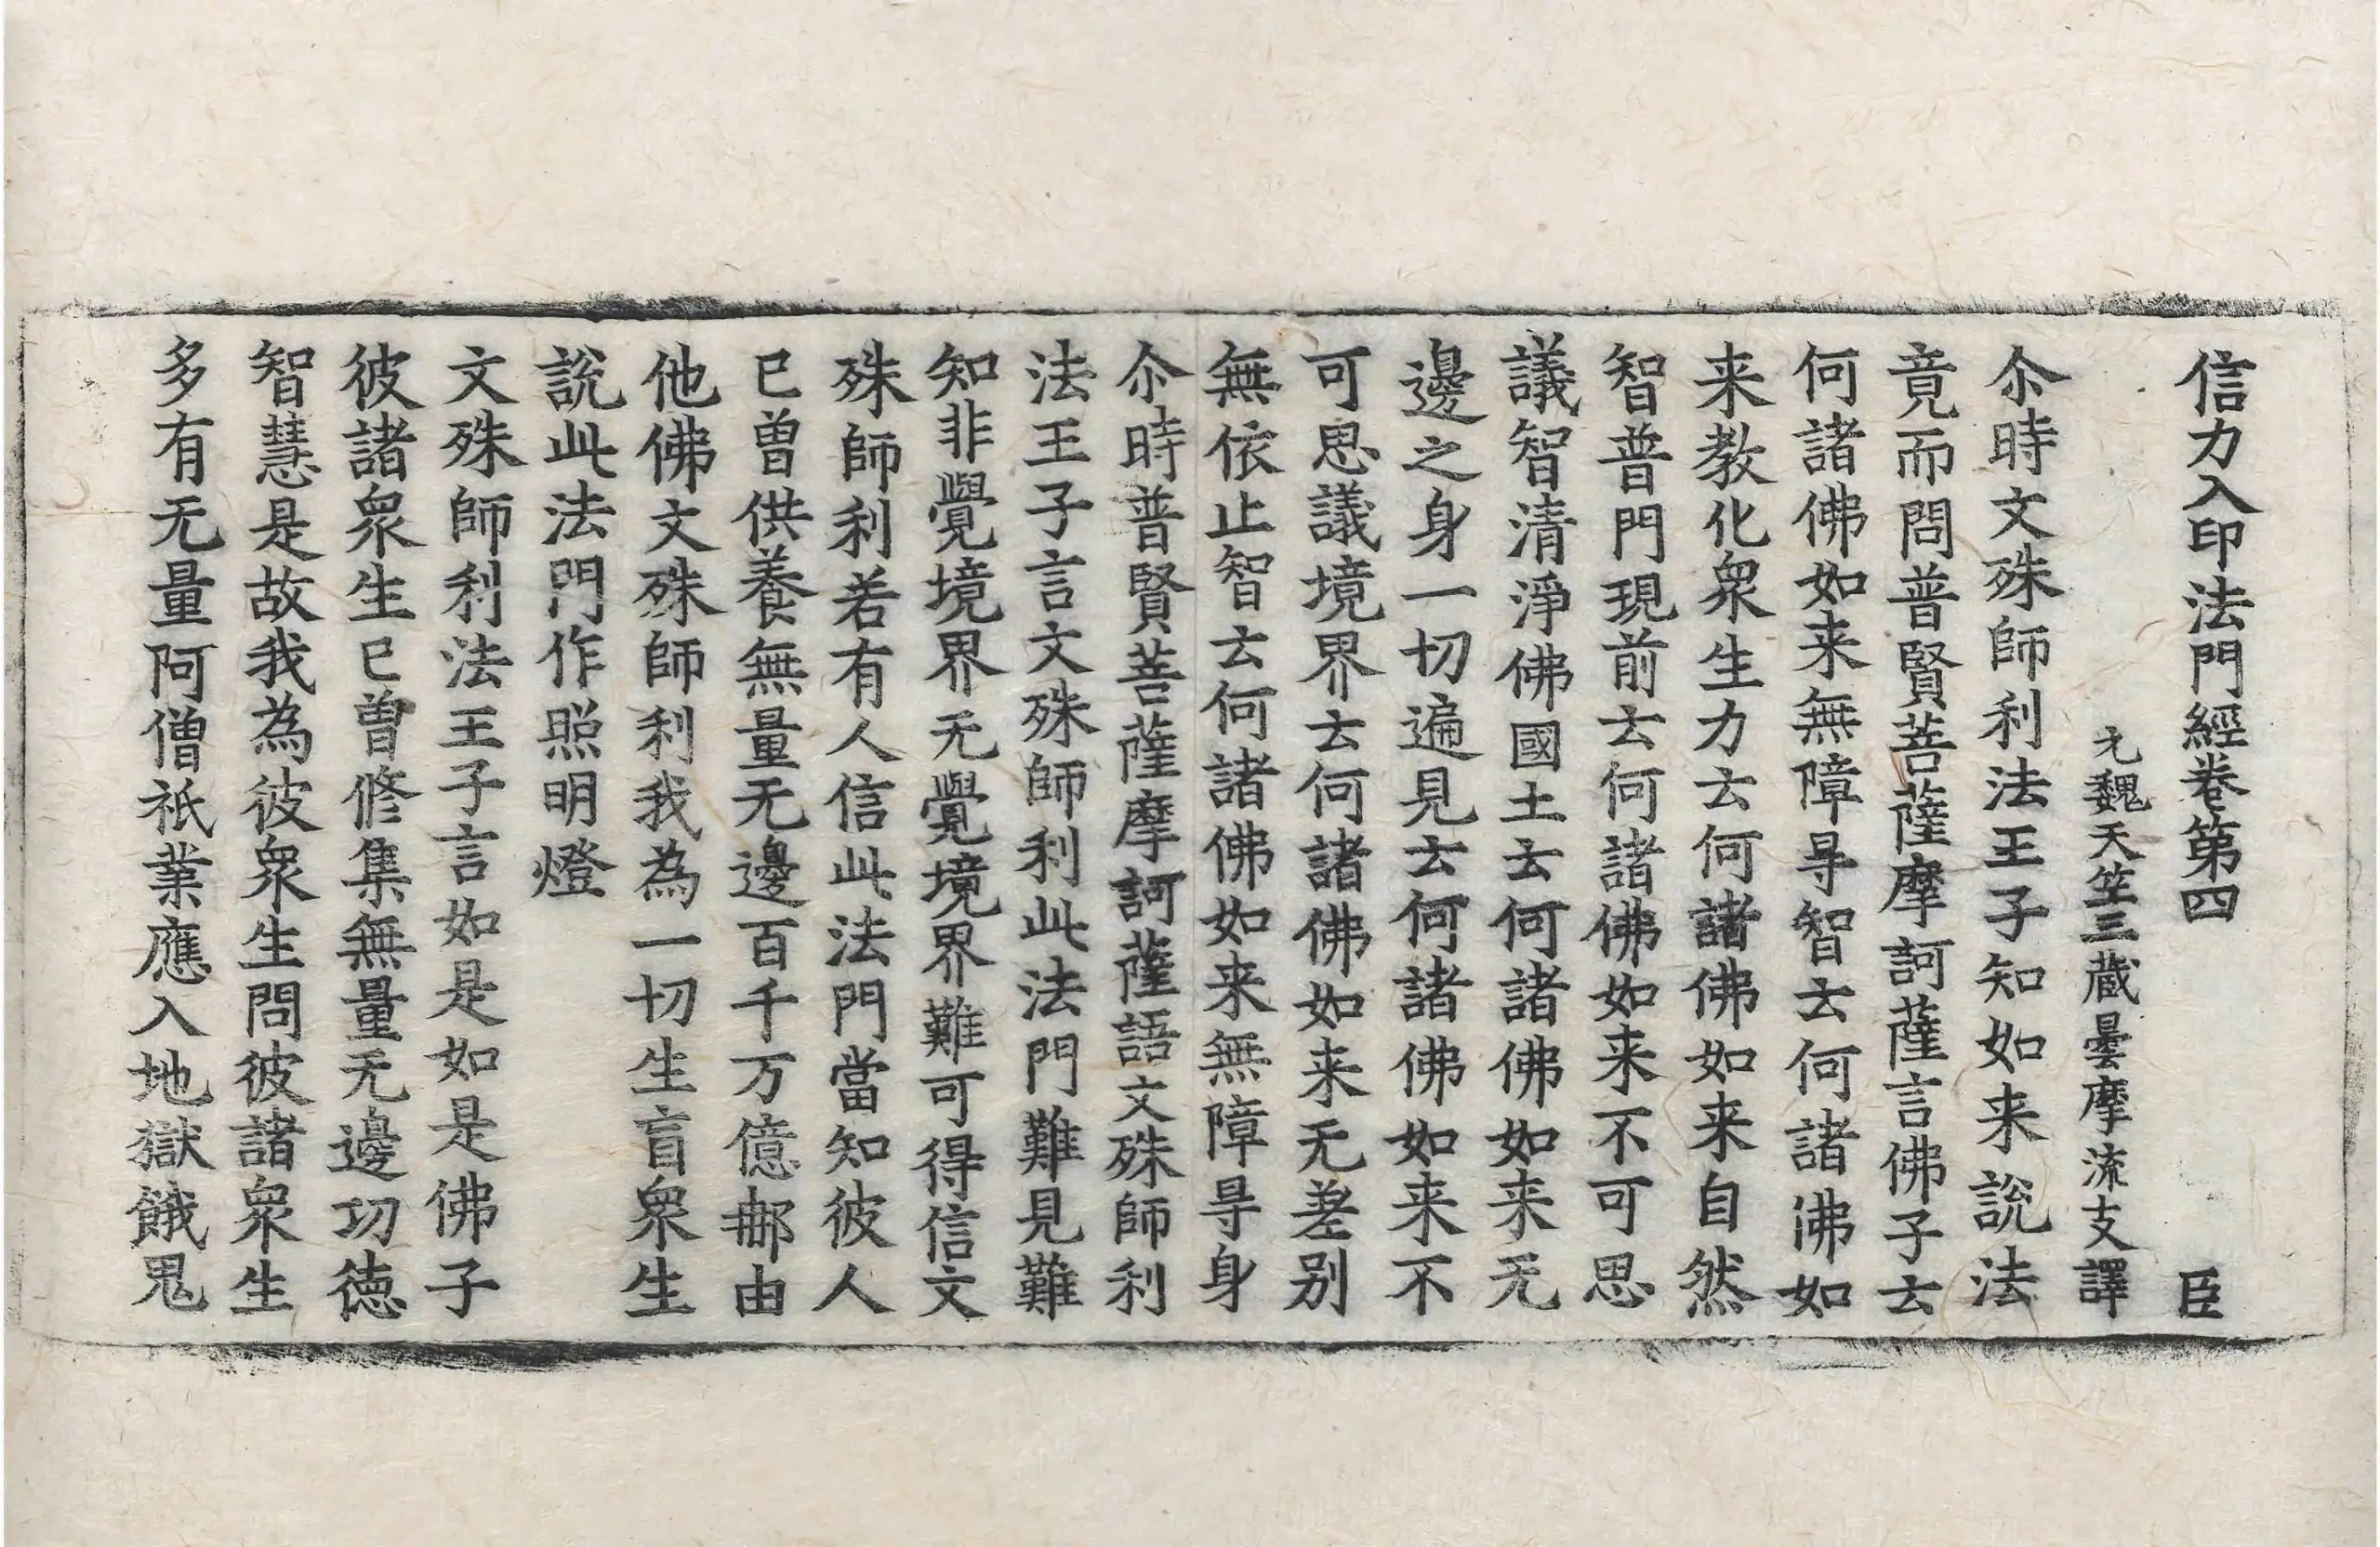 信力入印法門經卷第四 臣
元魏天竺三蔵曇摩流支譯
尒時文殊師利法王子知如来說法
竟而問普賢菩薩摩訶薩言佛子云
何諸佛如来無障㝵智云何諸佛如
来教化衆生力云何諸佛如来自然
智普門現前云何諸佛如来不可思
議智清淨佛國土云何諸佛如来无
邊之身一切遍見云何諸佛如来不
可思議境界云何諸佛如来无差别
無依止智云何諸佛如来無障㝵身
尒時普賢菩薩摩訶薩語文殊師利
法王子言文殊師利此法門難見難
知非覺境界无覺境界難可得信文
殊師利若有人信此法門當知彼人
已曾供養無量无邊百千万億那由
他佛文殊師利我為一切生盲衆生
說此法門作照明燈
文殊師利法王子言如是如是佛子
彼諸衆生已曾修集無量无邊功徳
智慧是故我為彼衆生問彼諸衆生
多有无量阿僧祇業應入地獄餓鬼